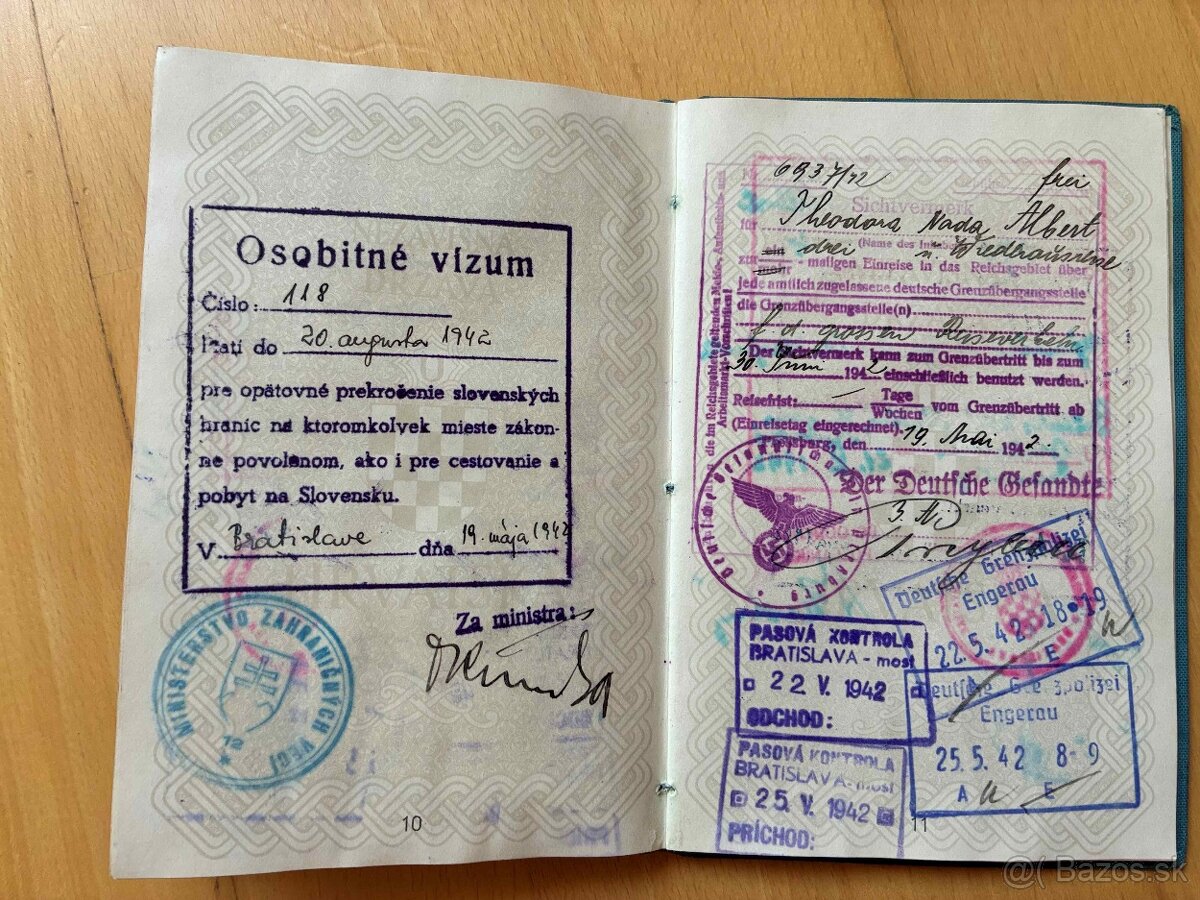 Osobitné vízum
Číslo: 118
Platí do 20. augusta 1942
pre opätovné prekročenie slovenských
hraníc na ktoromkoľvek mieste zákon-
ne povolenom, ako i pre cestovanie a
pobyt na Slovensku.
V Bratislave dňa 19. mája 1942
Za ministra:
MINISTERSTVO ZAHRANIČNÝCH VECÍ
* 12 *
10
6937/42 frei
Sichtvermerk
für Theodora Nada Albert
ein drei (Name des Inhabers) u. Wiederausreise
zur mehr - maligen Einreise in das Reichsgebiet über
jede amtlich zugelassene deutsche Grenzübergangsstelle
die Grenzübergangsstelle(n)
f. d. grossen Reiseverkehr
Der Sichtvermerk kann zum Grenzübertritt bis zum
30. Juni 1942 einschließlich benutzt werden.
Reisefrist: — Tage
Wochen vom Grenzübertritt ab
(Einreisetag eingerechnet)
Pressburg, den 19. Mai 1942.
Der Deutsche Gesandte
Deutsche Grenzpolizei
Engerau
22.5.42 18-19
E
PASOVÁ KONTROLA
BRATISLAVA - most
22 V. 1942
ODCHOD:
Deutsche Grenzpolizei
Engerau
25.5.42 8-9
A E
PASOVÁ KONTROLA
BRATISLAVA - most
25. V. 1942
PRÍCHOD:
11
@( Bazos.sk